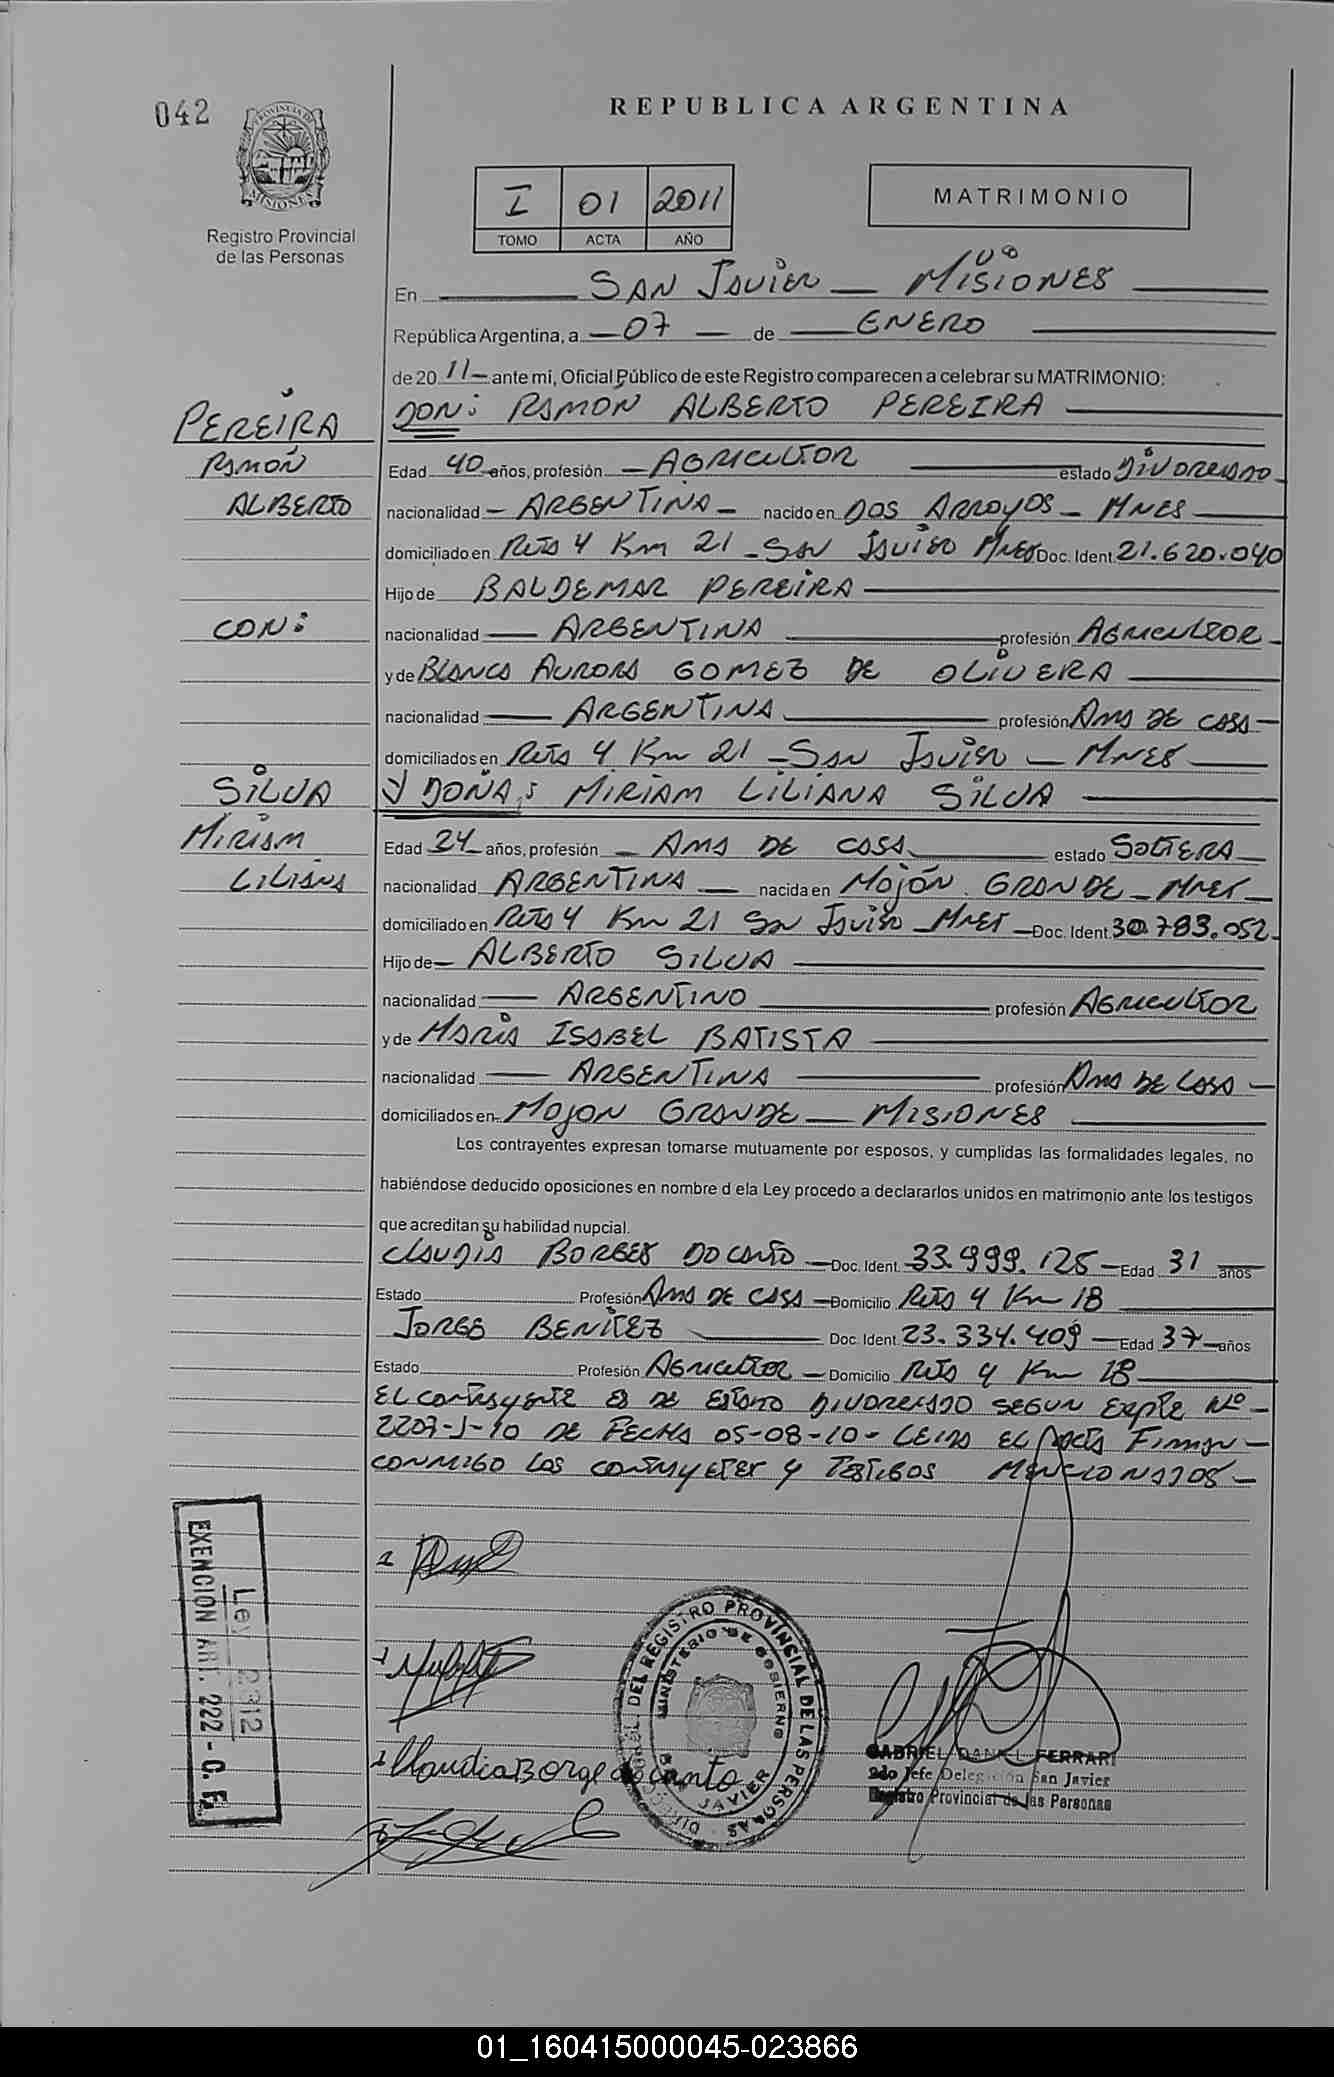 042
PROVINCIA DE
MISIONES
Registro Provincial
de las Personas
REPUBLICA ARGENTINA
I 01 2011
TOMO ACTA AÑO
MATRIMONIO
En SAN JAVIER — MISIONES
República Argentina, a — 07 — de — ENERO
de 20 11 — ante mi, Oficial Público de este Registro comparecen a celebrar su MATRIMONIO:
PEREIRA
DON: RAMÓN ALBERTO PEREIRA
RAMÓN
Edad 40 años, profesión — AGRICULTOR estado DIVORCIADO
ALBERTO
nacionalidad — ARGENTINA — nacido en DOS ARROYOS — MNES
domiciliado en RUTA 4 Km 21 — SAN JAVIER MNES Doc. Ident. 21.620.040
Hijo de BALDEMAR PEREIRA
CON:
nacionalidad — ARGENTINA profesión AGRICULTOR —
y de BLANCA AURORA GOMEZ DE OLIVERA
nacionalidad — ARGENTINA profesión AMA DE CASA —
domiciliados en RUTA 4 Km 21 — SAN JAVIER — MNES
SILVA
Y DOÑA: MIRIAM LILIANA SILVA
MIRIAM
Edad 24 años, profesión — AMA DE CASA estado SOLTERA —
LILIANA
nacionalidad ARGENTINA — nacida en MOJÓN GRANDE — MNES —
domiciliado en RUTA 4 Km 21 SAN JAVIER — MNES — Doc. Ident. 30.783.052
Hijo de — ALBERTO SILVA
nacionalidad — ARGENTINO profesión AGRICULTOR
y de MARIA ISABEL BATISTA
nacionalidad — ARGENTINA profesión AMA DE CASA —
domiciliados en MOJON GRANDE — MISIONES
Los contrayentes expresan tomarse mutuamente por esposos, y cumplidas las formalidades legales, no
habiéndose deducido oposiciones en nombre d ela Ley procedo a declararlos unidos en matrimonio ante los testigos
que acreditan su habilidad nupcial.
CLAUDIA BORGES DOCANTO — Doc. Ident. 33.999.125 — Edad 31 años
Estado Profesión AMA DE CASA — Domicilio RUTA 4 Km 18
JORGE BENITEZ Doc. Ident. 23.334.409 — Edad 37 años
Estado Profesión AGRICULTOR — Domicilio RUTA 4 Km 18
EL CONTRAYENTE ES DE ESTADO DIVORCIADO SEGUN EXPTE Nº —
2207-J-10 DE FECHA 05-08-10 - LEIDA EL ACTA FIRMAN —
CONMIGO LOS CONTRAYENTES Y TESTIGOS MENCIONADOS —
Ley 2312
EXENCION ART. 222 - C. F.
DEL REGISTRO PROVINCIAL DE LAS PERSONAS
MINISTERIO DE GOBIERNO
JAVIER
Claudia Borge docanto
GABRIEL DANIEL FERRARI
2do Jefe Delegación San Javier
Registro Provincial de las Personas
01_160415000045-023866